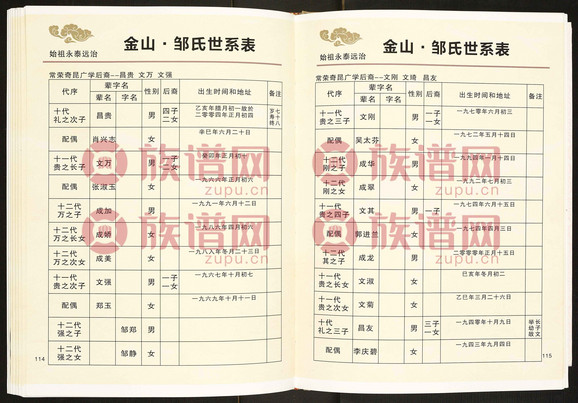 始祖永泰远治
金山·邹氏世系表
常荣奇昆广学后裔--昌贵 文万 文强
代序 辈字名 性别 后裔 出生时间和地址 备注
辈名 字名
十代 礼之次子 昌贵 男 四子二女 乙亥年腊月初一故於二零零四年正月初四
配偶 肖兴志 女 辛巳年六月二十日
十一代 贵之长子 文万 男 一子二女 癸卯年正月初十
配偶 张淑玉 女 一九六六年正月六日
十二代 万之子 成加 男 一九九一年六月十二日
十二代 万之长女 成娇 女 一九八六年四月初六
十二代 万之次女 成美 女 一九八八年冬月二十三日
十一代 贵之次子 文强 男 一子一女 一九六七年十月初七
配偶 郑玉 女 一九六九年十月十一日
十二代 强之子 邹郑 男
十二代 强之女 邹静 女
114
始祖永泰远治
金山·邹氏世系表
常荣奇昆广学后裔--文刚 文琦 昌友
代序 辈字名 性别 后裔 出生时间和地址 备注
辈名 字名
十一代 贵之三子 文刚 男 一子一女 一九七零年六月初三
配偶 吴太芬 女 一九七二年五月十四日
十二代 刚之子 成华 男 一九九四年一月十四日
十二代 刚之女 成翠 女 一九九二年七月初三
十一代 贵之四子 文其 男 一子
配偶 郭进兰 女
十二代 其之子 成龙 男 二零零零年正月十五日
十一代 贵之长女 女 癸亥年冬月初二
十一代 贵之次女 文菊 女 乙巳年三月二十六日
十代 礼之三子 昌友 男 三子一女 一九四零年十月九日
配偶 李庆碧 女 一九四三年九月四日
115
族谱网
zupu.cn
族谱网
zupu.cn
族谱网
zupu.cn
族谱网
zupu.cn